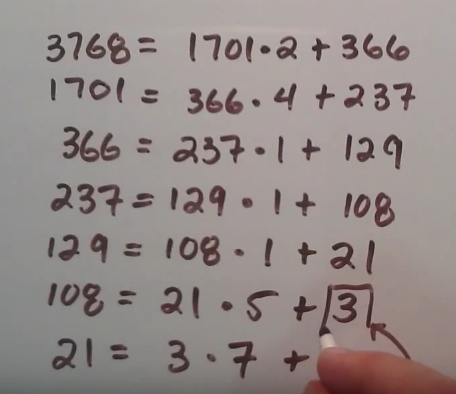 3768 = 1701·2 + 366
1701 = 366·4 + 237
366 = 237·1 + 129
237 = 129·1 + 108
129 = 108·1 + 21
108 = 21·5 + 3
21 = 3·7 +